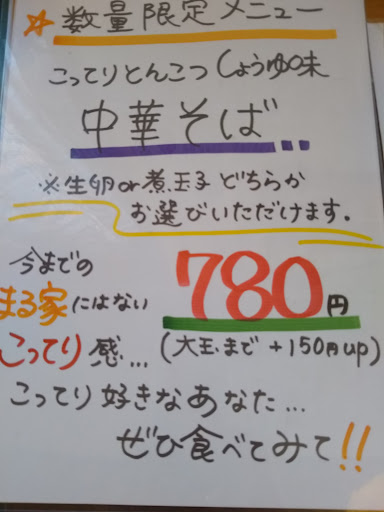 ☆数量限定メニュー
こってりとんこつしょうゆ味
中華そば...
※生卵or煮玉子どちらか
お選びいただけます。
今までの
まる家にはない
こってり感...
780円
(大玉まで+150円up)
こってり好きなあなた...
ぜひ食べてみて!!